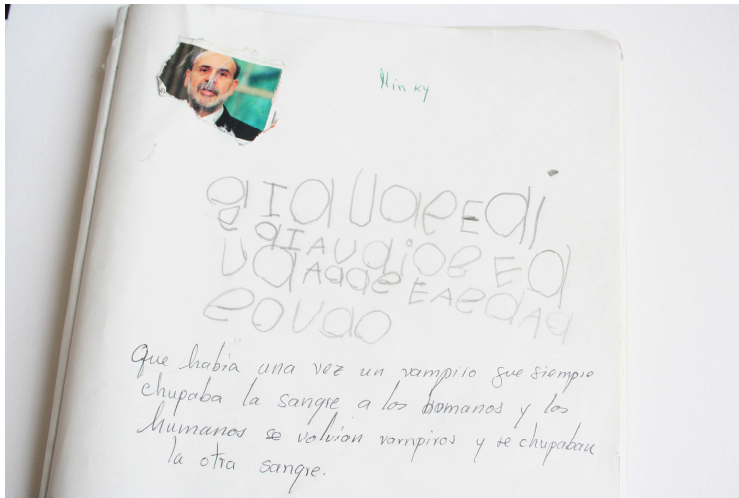 Minky
aIaUaeEai
eaIAUaioeEa
UaAaaeEAeaAa
eoUao
Que había una vez un vampiro que siempre
chupaba la sangre a los homanos y los
humanos se volvían vampiros y se chupaban
la otra sangre.